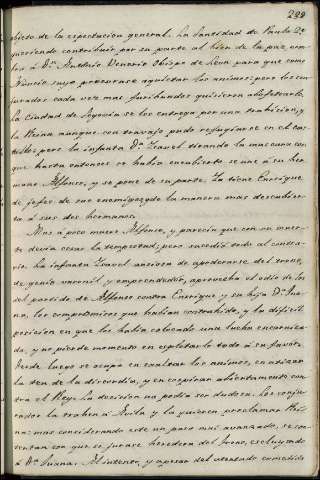 299
objeto de la espectacion general. La Santidad de Paulo 2º
queriendo contribuir por su parte al bien de la paz en-
vio á Dn. Antonio Venerio Obispo de Leon para que como
Nuncio suyo procurase aquietar los animos; pero los con-
jurados cada vez mas furibundos quisieron
la Ciudad de Segovia se les entrega por una traicion, y
la Reina aunque con trabajo pudo refugiarse en el cas-
tillo; pero la infanta Dª. Isavel tirando la mascara con
que hasta entonces se habia encubierto se une á su her-
mano Alfonso, y se pone de su parte. La tiene Enrique
de jefes de sus enemigos, de la manera mas descubier-
ta á sus dos hermanos.
Mas á poco muere Alfonso, y parecia que con su muer-
te devia cesar la tempestad; pero sucedió todo al contra-
rio. La infanta Isavel ansiosa de apoderarse del trono,
de genio varonil y emprendedor, aprovecha el odio de los
del partido de Alfonso contra Enrique y su hija Dª. Jua-
na, los compromisos que habian contrahido, y la dificil
posicion en que los habia colocado una lucha encarniza-
da, y no pierde momento en esplotarlo todo á su favor.
Desde luego se ocupa en exaltar los animos, en atizar
la tea de la discordia, y en conspirar abiertamente con-
tra el Rey. La decision no podia ser dudosa. Los conju-
rados la trahen á Avila y la quieren proclamar Rei-
na: mas considerando este un paso mui avanzado, se con-
tentan con que se jurare heredera del trono, escluyendo
á Dª. Juana. Al intento, y apesar del atentado cometido